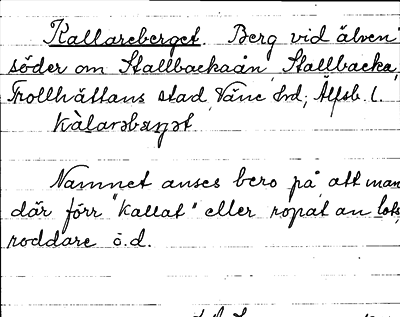 Kallareberget. Berg vid älven
söder om Stallbackaån, Stallbacka,
Trollhättans stad, Väne hd; Älfsb. l.
kàlarəbærjət

Namnet anses bero på att man
där förr "kallat" eller ropat an lots,
roddare o.d.